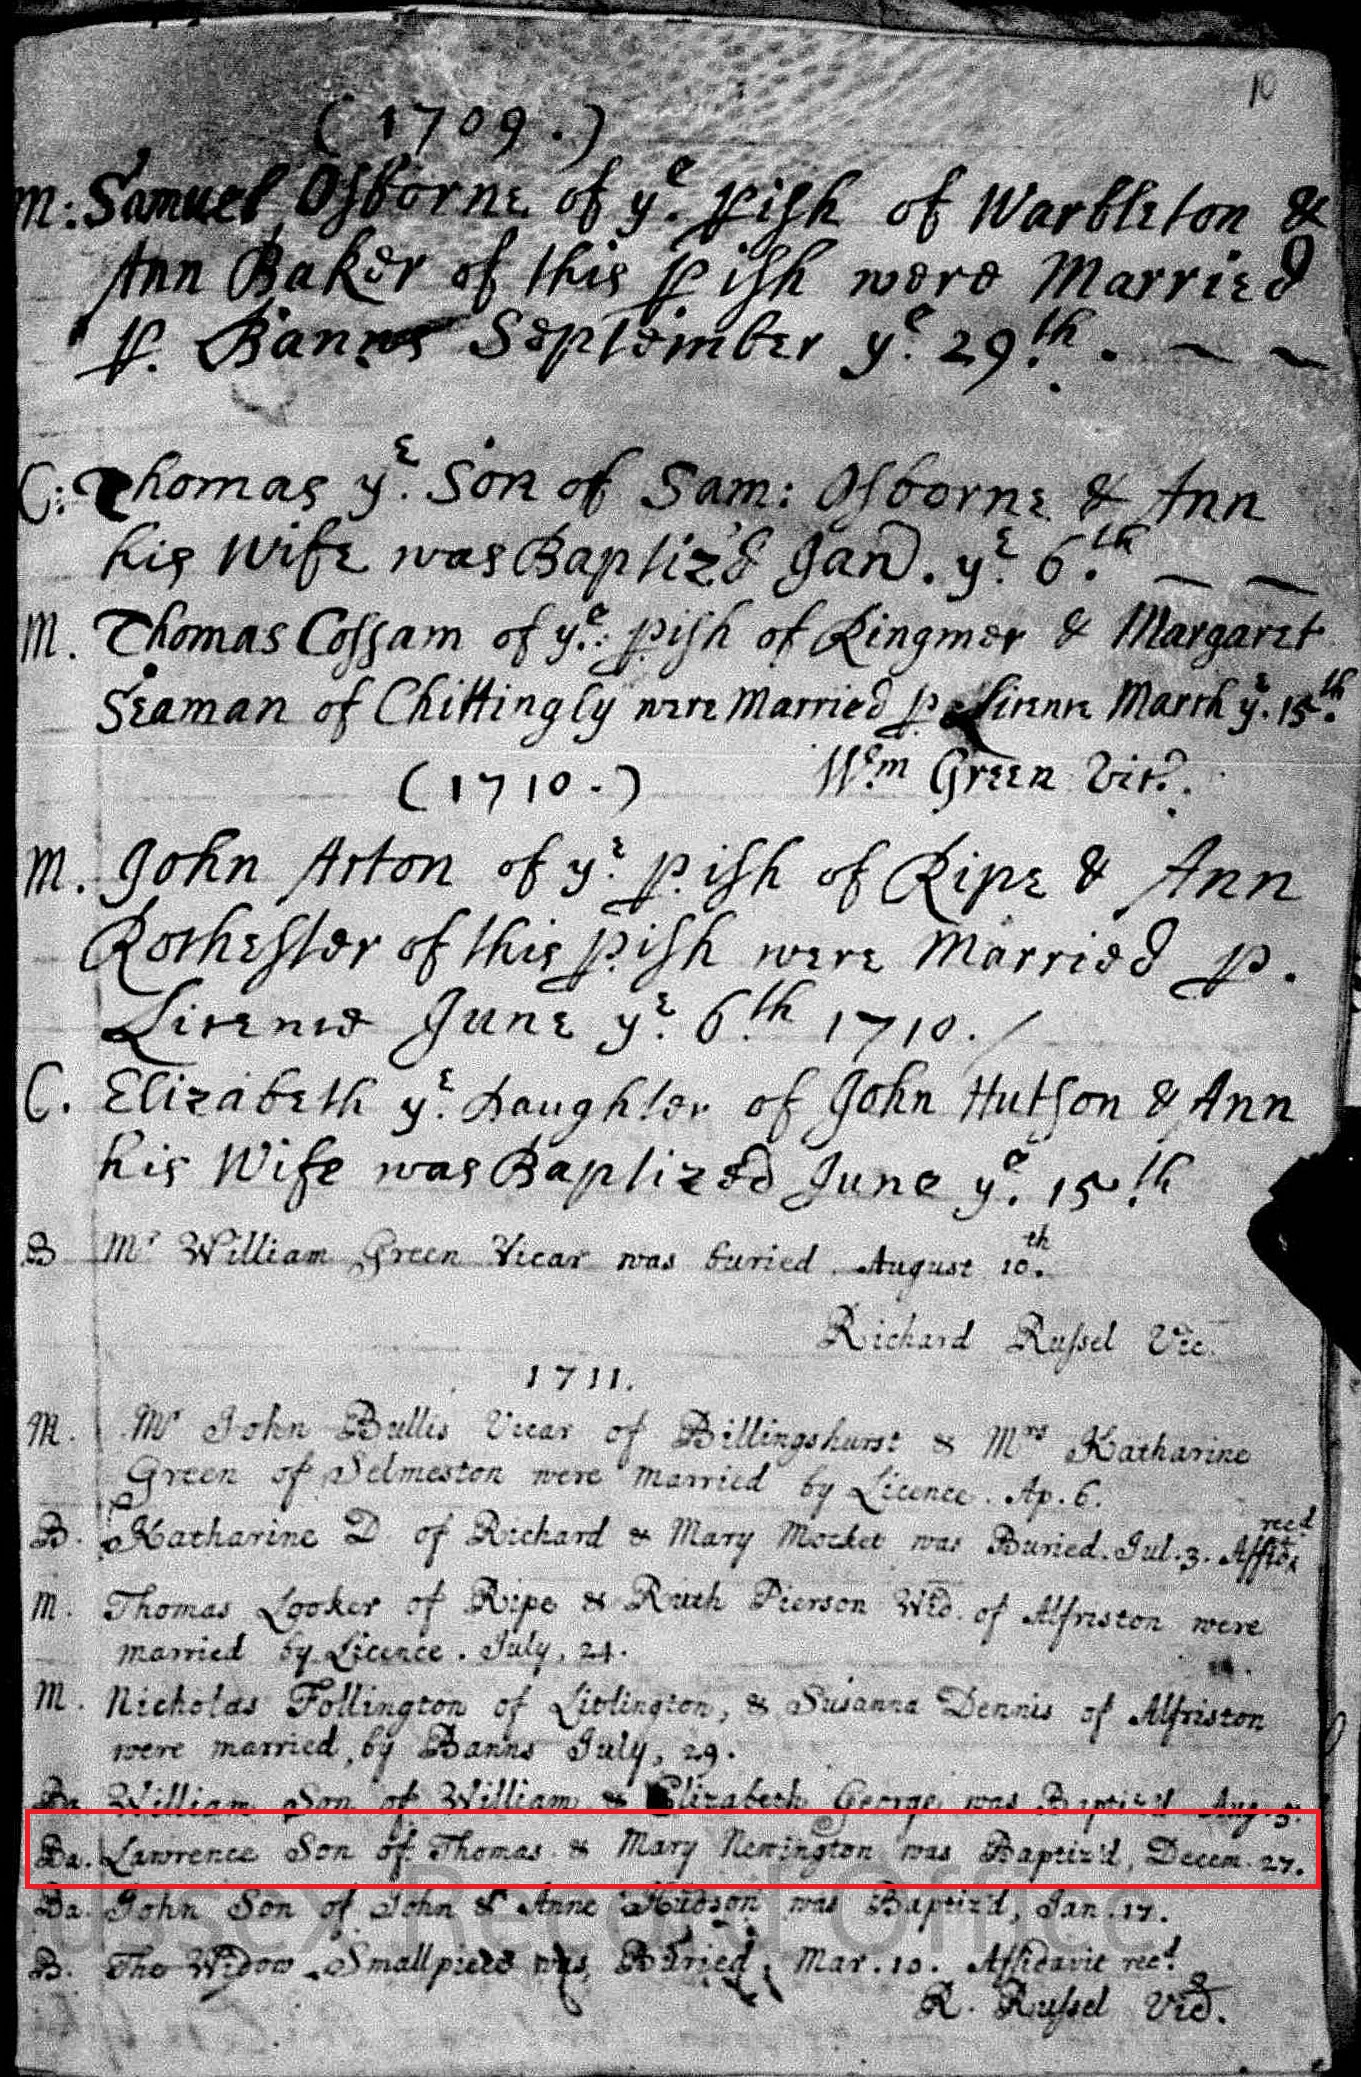 10
(1709.)
M: Samuel Osborne of yᵉ. pish of Warbleton &
Ann Baker of this pish were Married
p. Banns September yᵉ. 29.th. — —
C: Thomas yᵉ. Son of Sam: Osborne & Ann
his Wife was Baptiz'd Jan. yᵉ. 6.th — —
M. Thomas Cossam of yᵉ: pish of Ringmer & Margaret
Seaman of Chittingly were Married p Licence March yᵉ. 15.th
Wm Green Vic.
(1710.)
M. John Acton of yᵉ. pish of Ripe & Ann
Rochester of this pish were Married p.
Licence June yᵉ. 6th 1710.
C. Elizabeth yᵉ. Daughter of John Hutson & Ann
his Wife was Baptized June yᵉ. 15.th
B Mr William Green Vicar was buried August 10.th
Richard Russel Vic.
1711.
M. Mr John Bullis Vicar of Billingshurst & Mrs Katharine
Green of Selmeston were married by Licence. Ap. 6.
B. Katharine D. of Richard & Mary Mocket was Buried. Jul. 3. Affid. recd
M. Thomas Looker of Ripe & Ruth Pierson Wid. of Alfriston were
married by Licence. July, 24.
M. Nicholas Follington of Litlington, & Susanna Dennis of Alfriston
were married, by Banns July, 29.
Ba. William Son of William & Elizabeth George was Baptiz'd Aug. 5.
Ba. Lawrence Son of Thomas & Mary Newington was Baptiz'd, Decem. 27.
Ba. John Son of John & Anne Hudson was Baptiz'd, Jan. 17.
B. The Widow Smallpiece was Buried, Mar. 10. Affidavit recd
R. Russel Vic.
Sussex Record Office